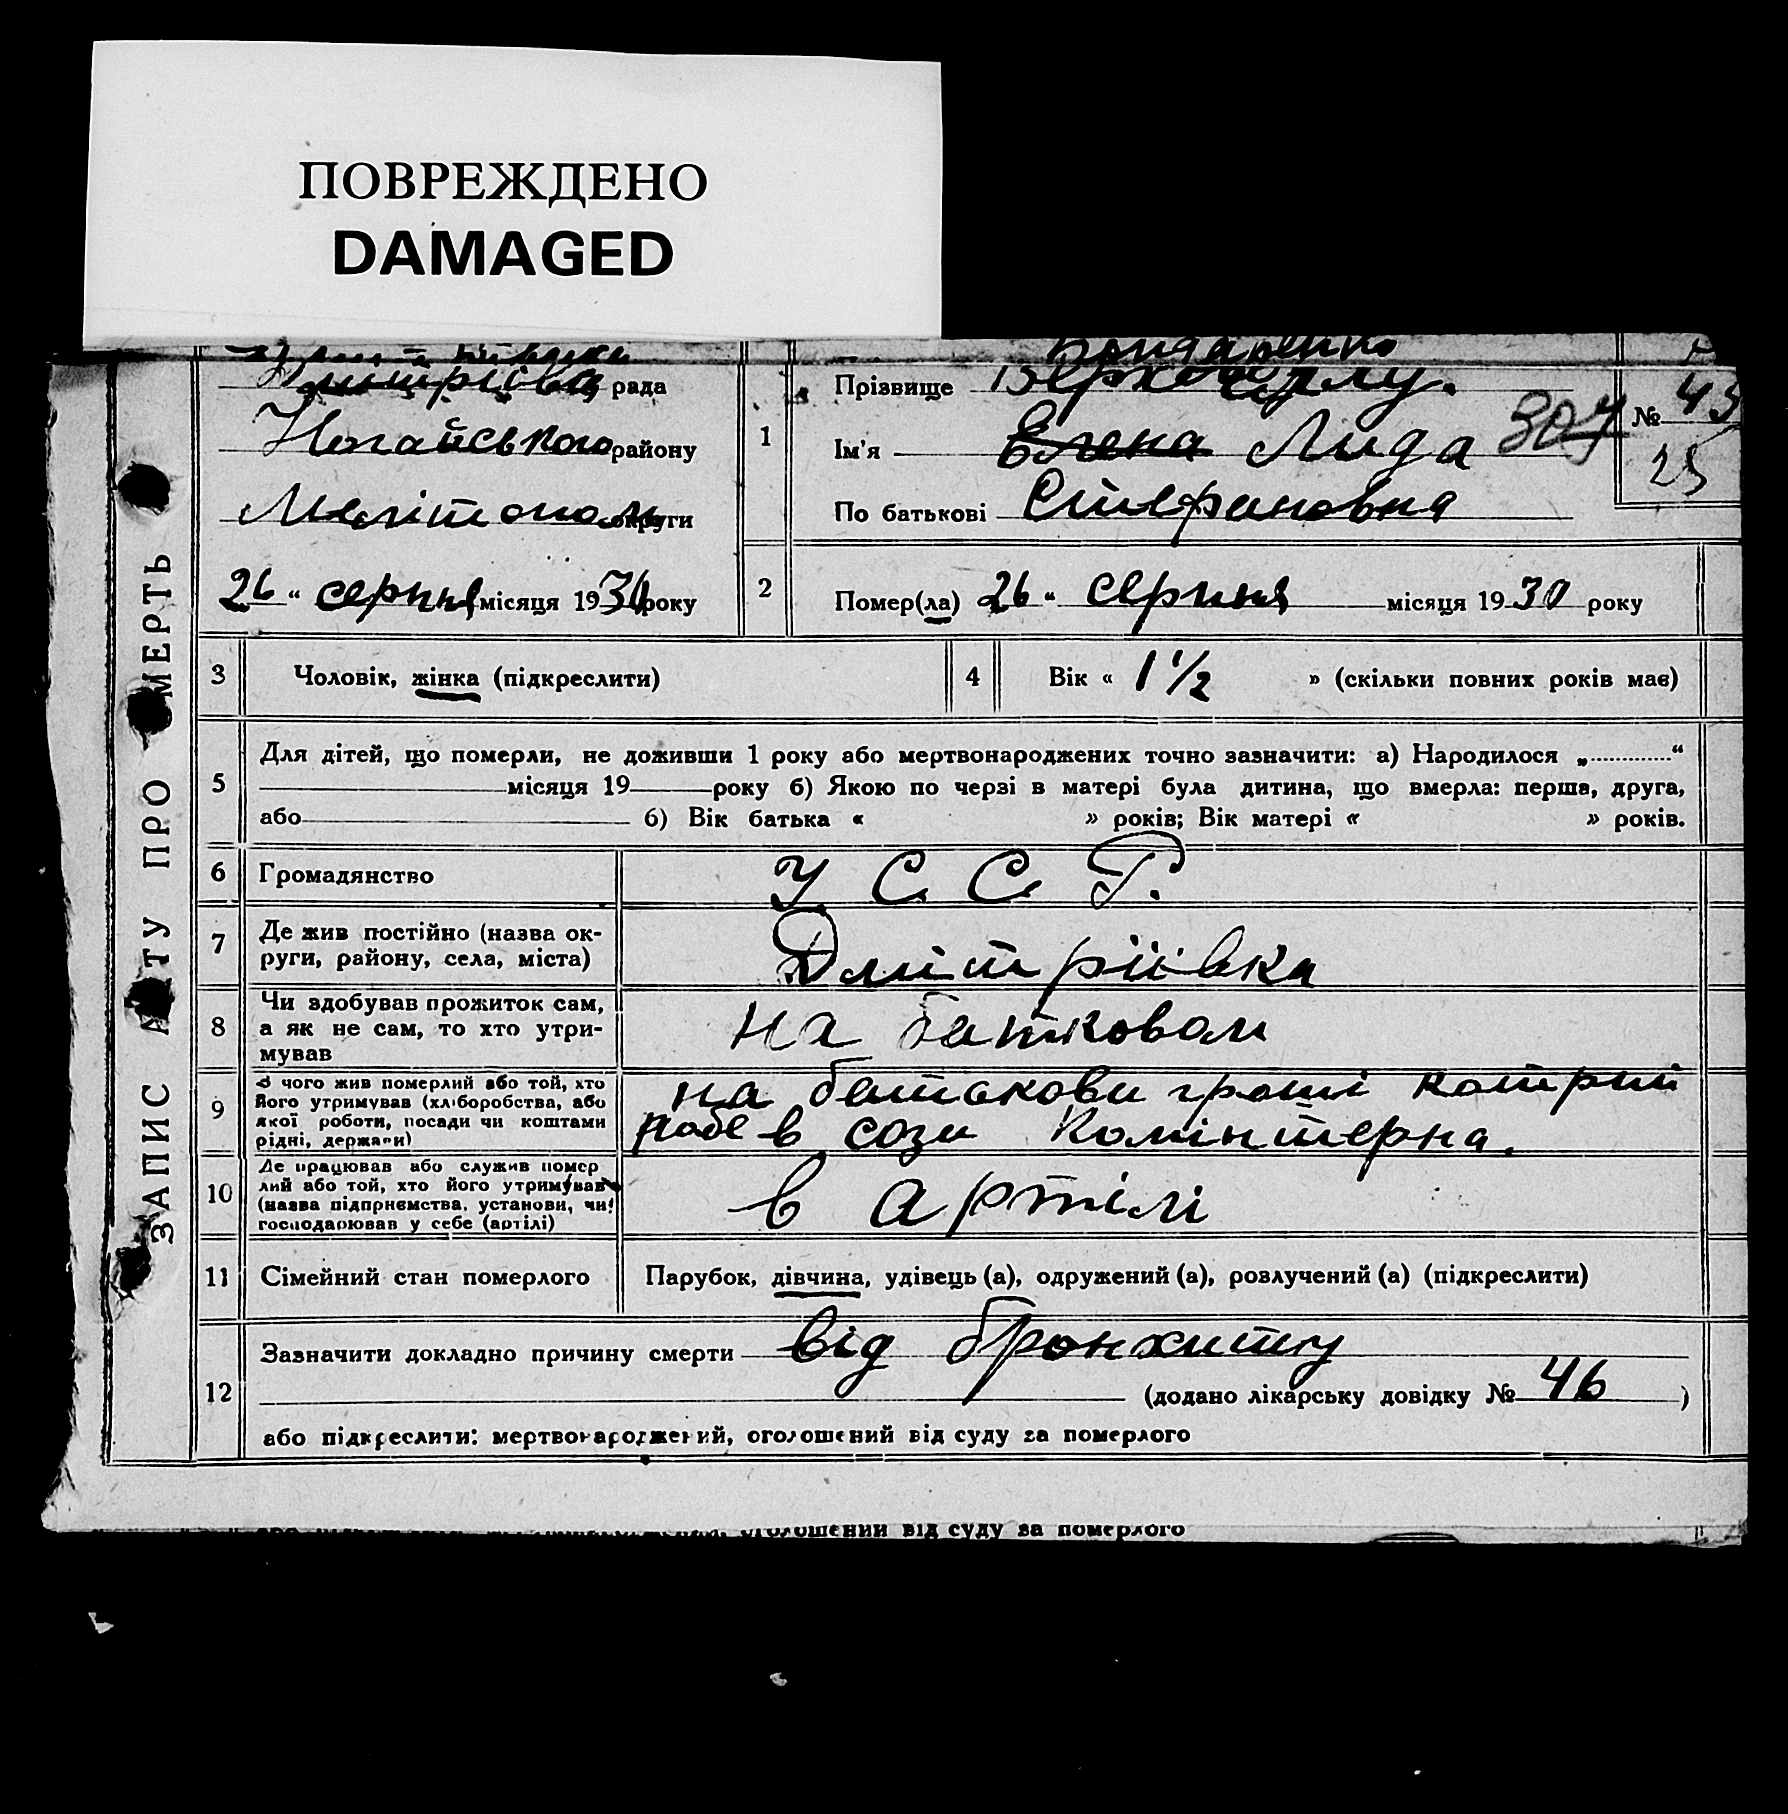 ПОВРЕЖДЕНО
DAMAGED
Бондаренко
рада
Прізвище
№ 43
Ногайського району
1
Ім'я Елена Лида 304
25
Мелітопол округи
По батькові Стефановна
26 " серпня місяця 1930 року
2
Помер(ла) 26 " серпня місяця 1930 року
ЗАПИС АКТУ ПРО СМЕРТЬ
3 Чоловік, жінка (підкреслити)
4 Вік « 1 1/2 » (скільки повних років має)
5
Для дітей, що померли, не доживши 1 року або мертвонароджених точно зазначити: а) Народилося „ “
місяця 19 року б) Якою по черзі в матері була дитина, що вмерла: перша, друга,
або б) Вік батька « » років; Вік матері « » років.
6 Громадянство У. С. С. Р.
7 Де жив постійно (назва ок-
руги, району, села, міста)
Дмітріівка
8 Чи здобував прожиток сам,
а як не сам, то хто утри-
мував
на батковом
9 З чого жив померлий або той, хто
його утримував (хліборобства, або
якої роботи, посади чи коштами
рідні, держави)
на батькови гроші котрий
робе в созі Комінтерна.
10 Де працював або служив помер
лий або той, хто його утримував
(назва підприємства, установи, чи
господарював у себе (артілі)
в артілі
11 Сімейний стан померлого Парубок, дівчина, удівець (а), одружений (а), розлучений (а) (підкреслити)
12 Зазначити докладно причину смерти від бронхиту
(додано лікарську довідку № 46 )
або підкреслити: мертвонароджений, оголошений від суду за померлого
оголошений від суду за померлого